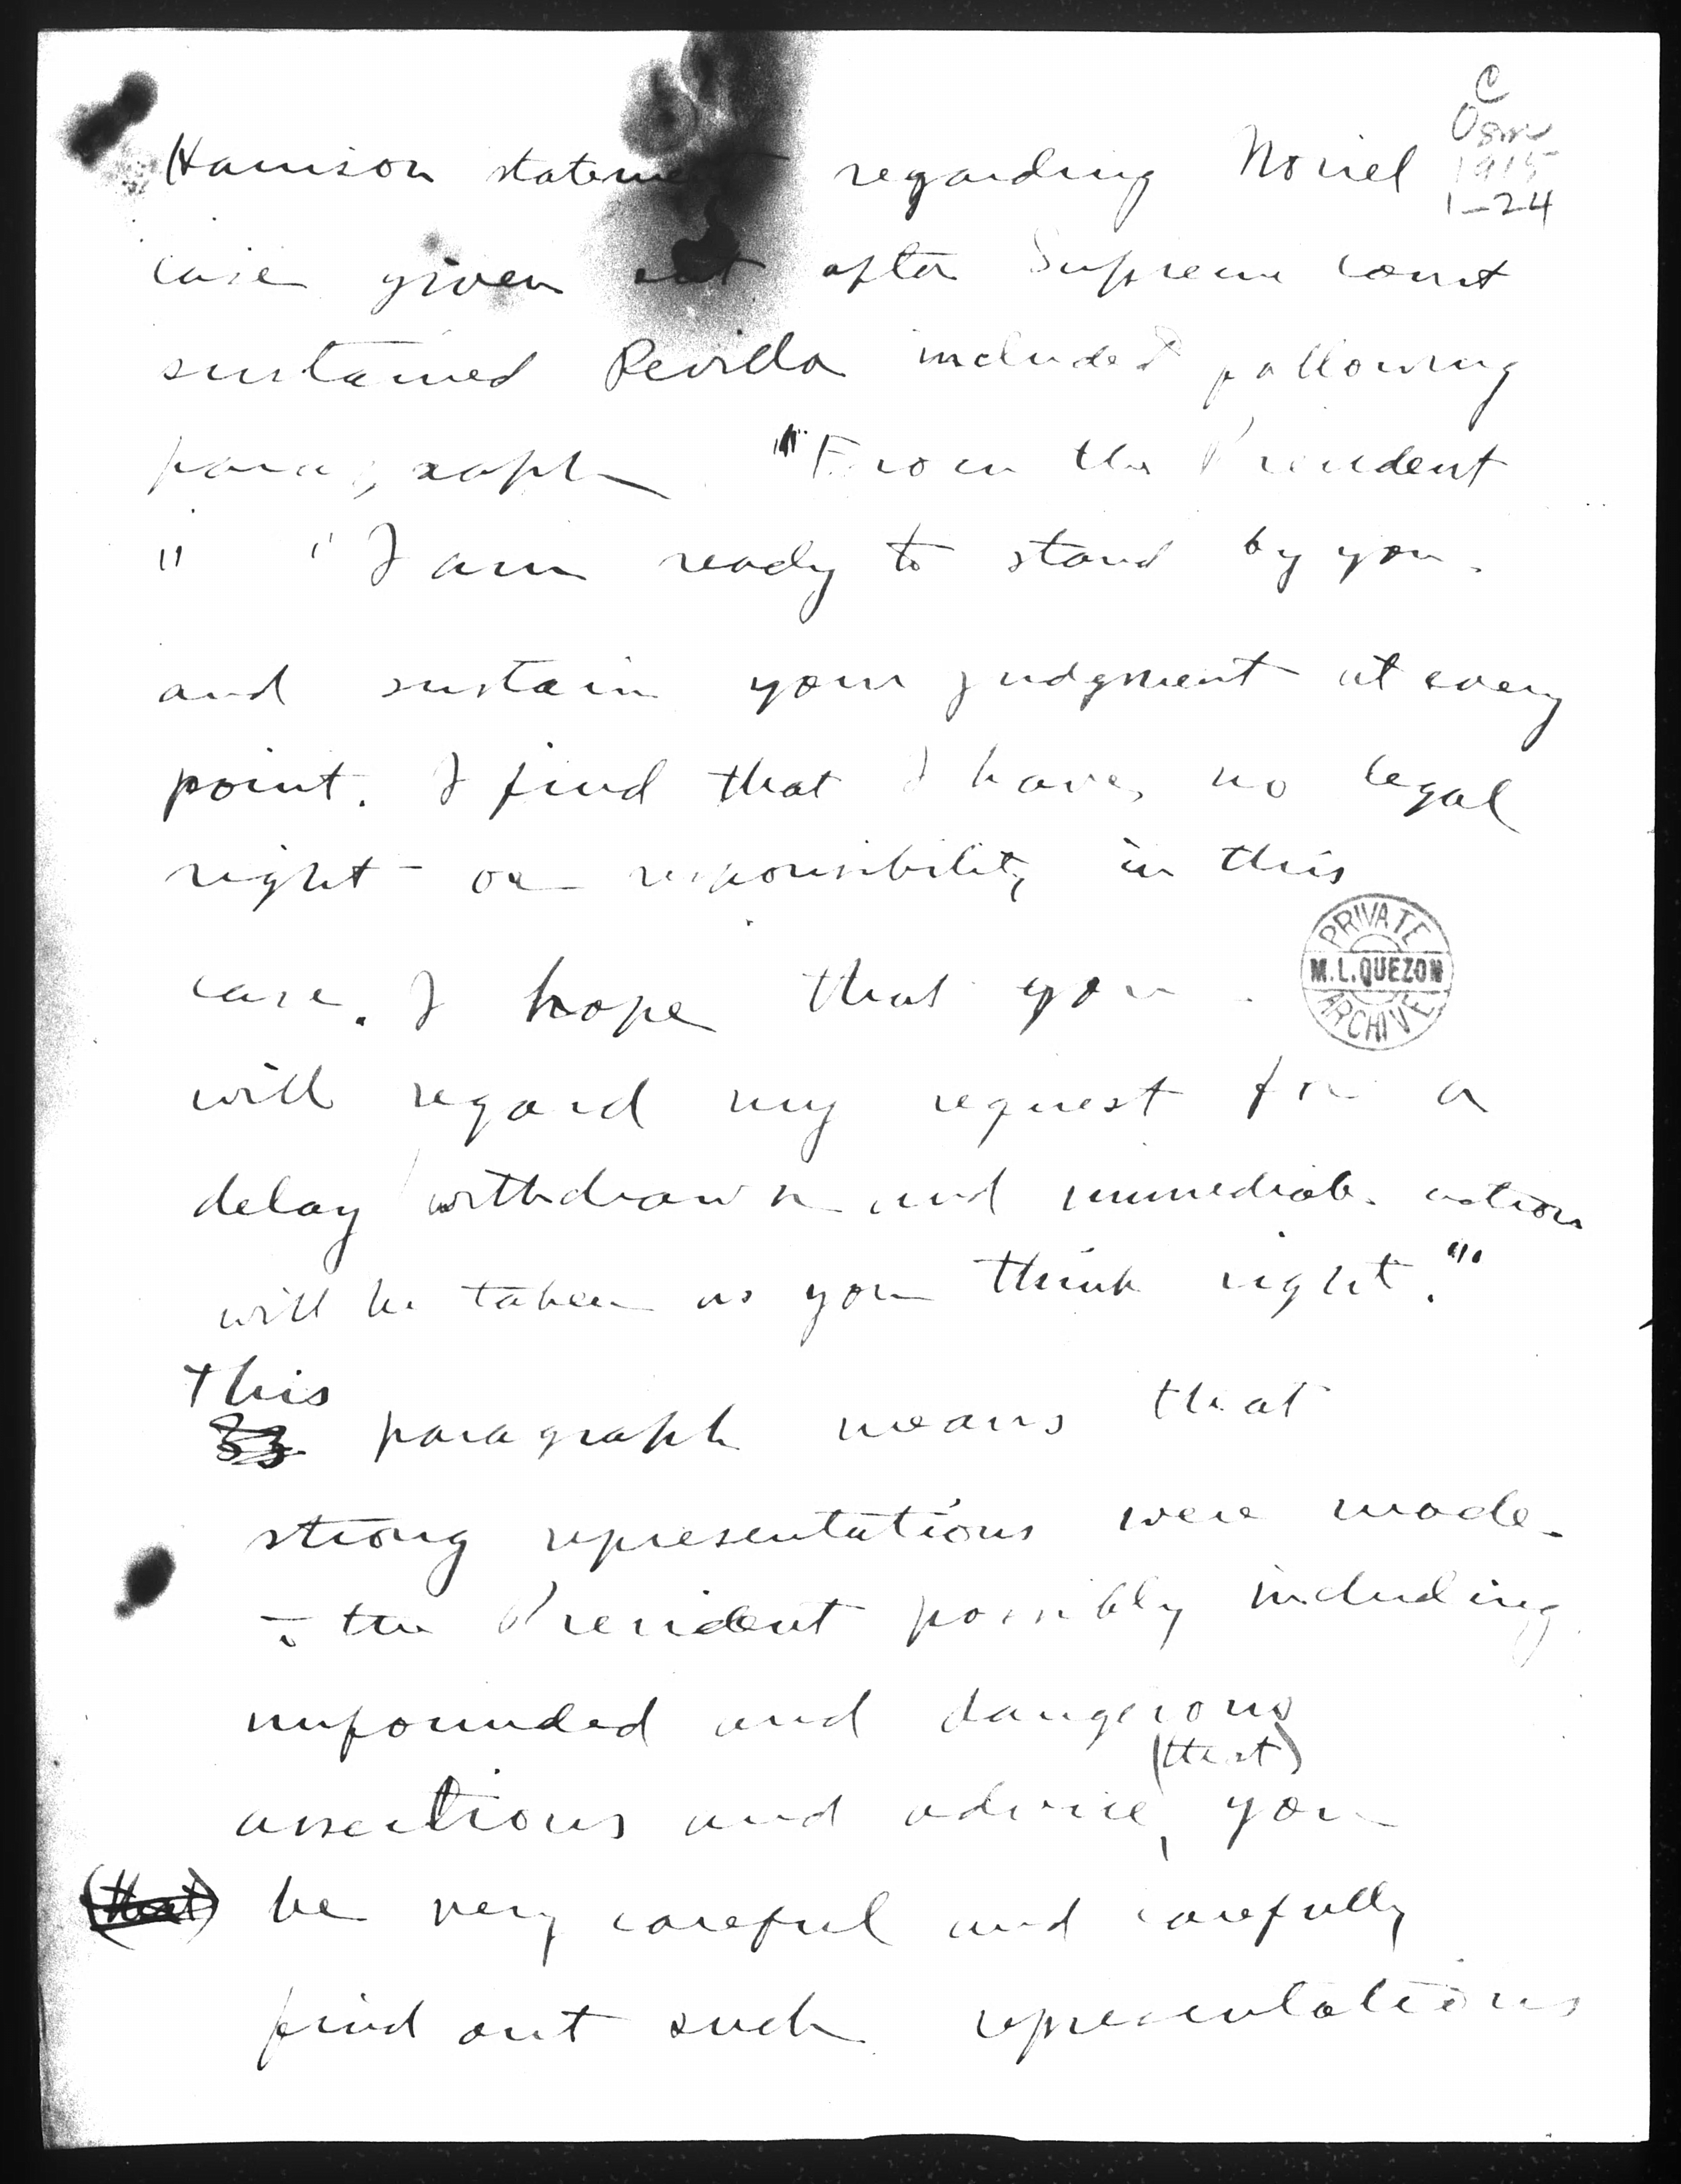 C
Osm
1915
1-24
Harrison statement regarding Noriel
case given out after Supreme court
sustained Revilla included following
paragraph "'From the President
" "I am ready to stand by you
and sustain your judgment at every
point. I find that I have no legal
right or responsibility in this
case. I hope that you
will regard my request for a
delay withdrawn and immediate action
will be taken as you think right."'
PRIVATE
M.L.QUEZON
ARCHIVE
This
paragraph means that
strong representations were made
to the President possibly including
unfounded and dangerous
(that)
assertions and advice, you
(that) be very careful and carefully
find out such representations